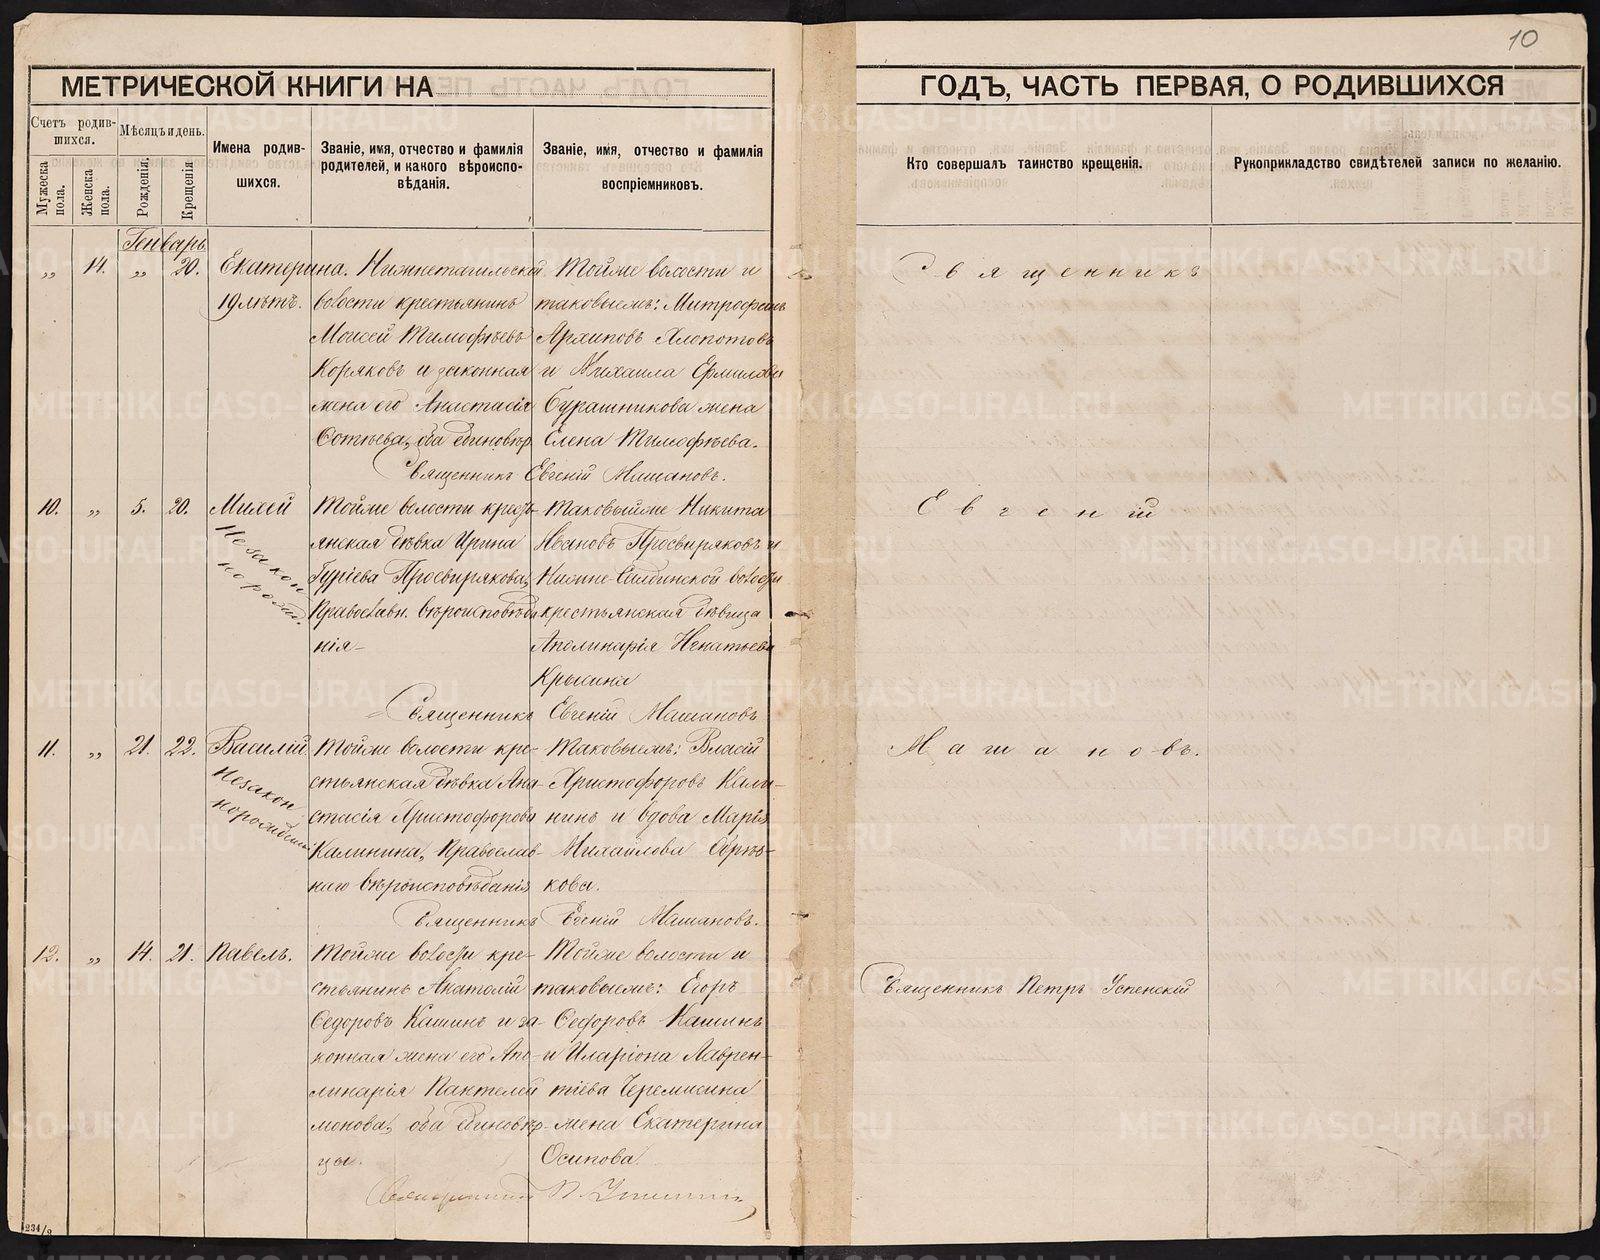 10
МЕТРИЧЕСКОЙ КНИГИ НА
ГОДЪ, ЧАСТЬ ПЕРВАЯ, О РОДИВШИХСЯ
Счетъ родив-
шихся.
Мѣсяцъ и день.
Мужеска
пола.
Женска
пола.
Рожденія.
Крещенія
Имена родив-
шихся.
Званіе, имя, отчество и фамилія
родителей, и какого вѣроиспо-
вѣданія.
Званіе, имя, отчество и фамилія
воспріемниковъ.
Кто совершалъ таинство крещенія.
Рукоприкладство свидѣтелей записи по желанію.
Генварь
„ 14. „ 20. Екатерина.
19 лѣтъ.
Нижнетагильской
волости крестьянинъ
Моисей Тимофѣевъ
Коряковъ и законная
жена его Анастасія
Фотіева, оба единовѣр.
Тойже волости и
таковыежъ: Митрофанъ
Архиповъ Хлопотовъ
и Михаила Ермилова
Бурашникова жена
Елена Тимофѣева.
Священникъ Евгеній Машановъ.
10. „ 5. 20. Михей
Незакон
норожд.
Тойже волости кресть-
янская дѣвка Ирина
Гуріева Просвирякова,
Православн. вѣроисповѣда
нія
Таковыйже Никита
Ивановъ Просвиряковъ и
Нижне-Салдинской волости
крестьянская дѣвица
Аполинарія Игнатьева
Крысина
Священникъ Евгеній Машановъ
11. „ 21. 22. Василій
Незакон
норожденный
Тойже волости кре-
стьянская дѣвка Ана-
стасія Христофорова
Калинина, Православ-
наго вѣроисповѣданія
Таковыежъ: Власій
Христофоровъ Кали-
нинъ и вдова Марія
Михайлова
кова.
Священникъ Евгеній Машановъ.
12. „ 14. 21. Павелъ.
Тойже волости кре-
стьянинъ Анатолій
Федоровъ Кашинъ и за-
конная жена его Апо-
линарія Пантелей
монова, оба единовѣр-
цы.
Тойже волости и
таковыежъ: Егоръ
Федоровъ Кашинъ
и Иларіона Лаврен-
тіева Черемисина
жена Екатерина
Осипова.
Священникъ П. Успенскій
Священникъ
Евгеній
Машановъ.
Священникъ Петръ Успенскій
234/2
METRIKI.GASO-URAL.RU